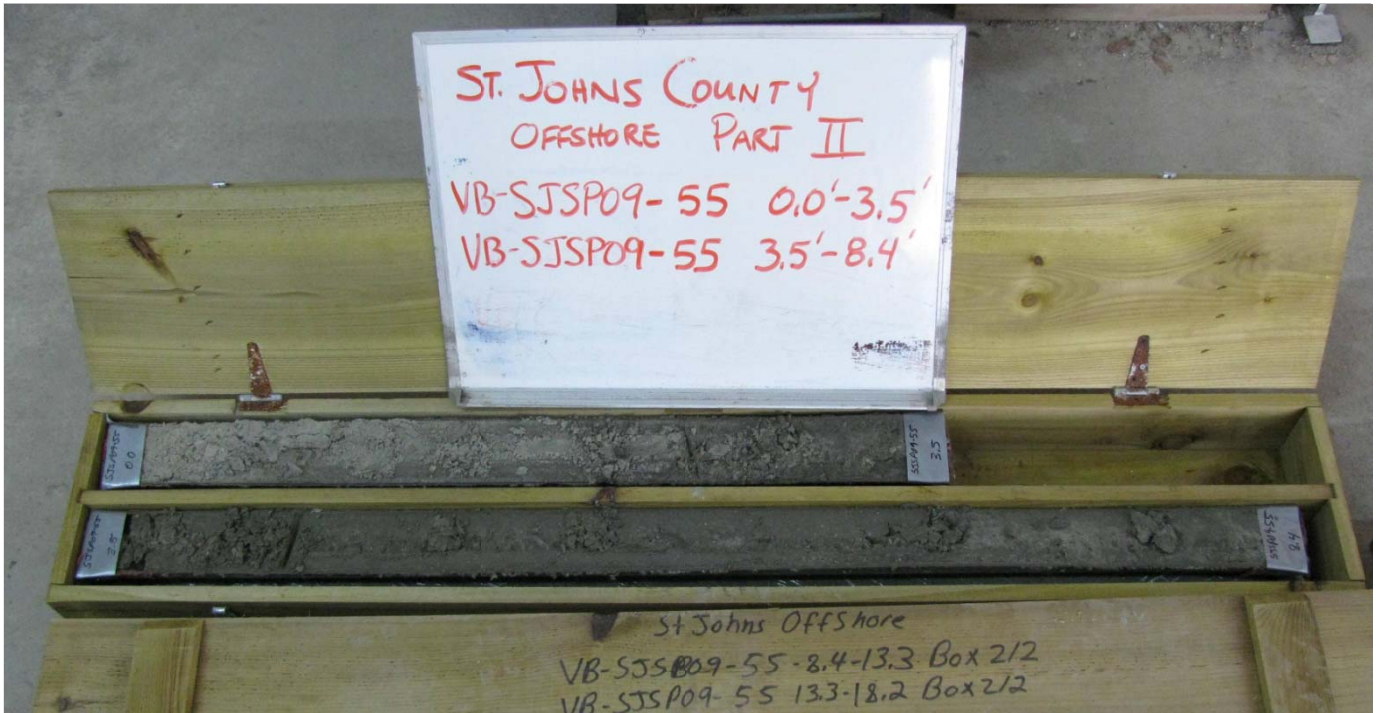 ST. JOHNS COUNTY
OFFSHORE PART II
VB-SJSP09-55 0.0'-3.5'
VB-SJSP09-55 3.5'-8.4'
SJSP09-55
0.0
SJSP09-55
3.5
SJSP09-55
3.5
SJSP09-55
8.4
St Johns Offshore
VB-SJSP09-55-8.4-13.3 Box 2/2
VB-SJSP09-55 13.3-18.2 Box 2/2